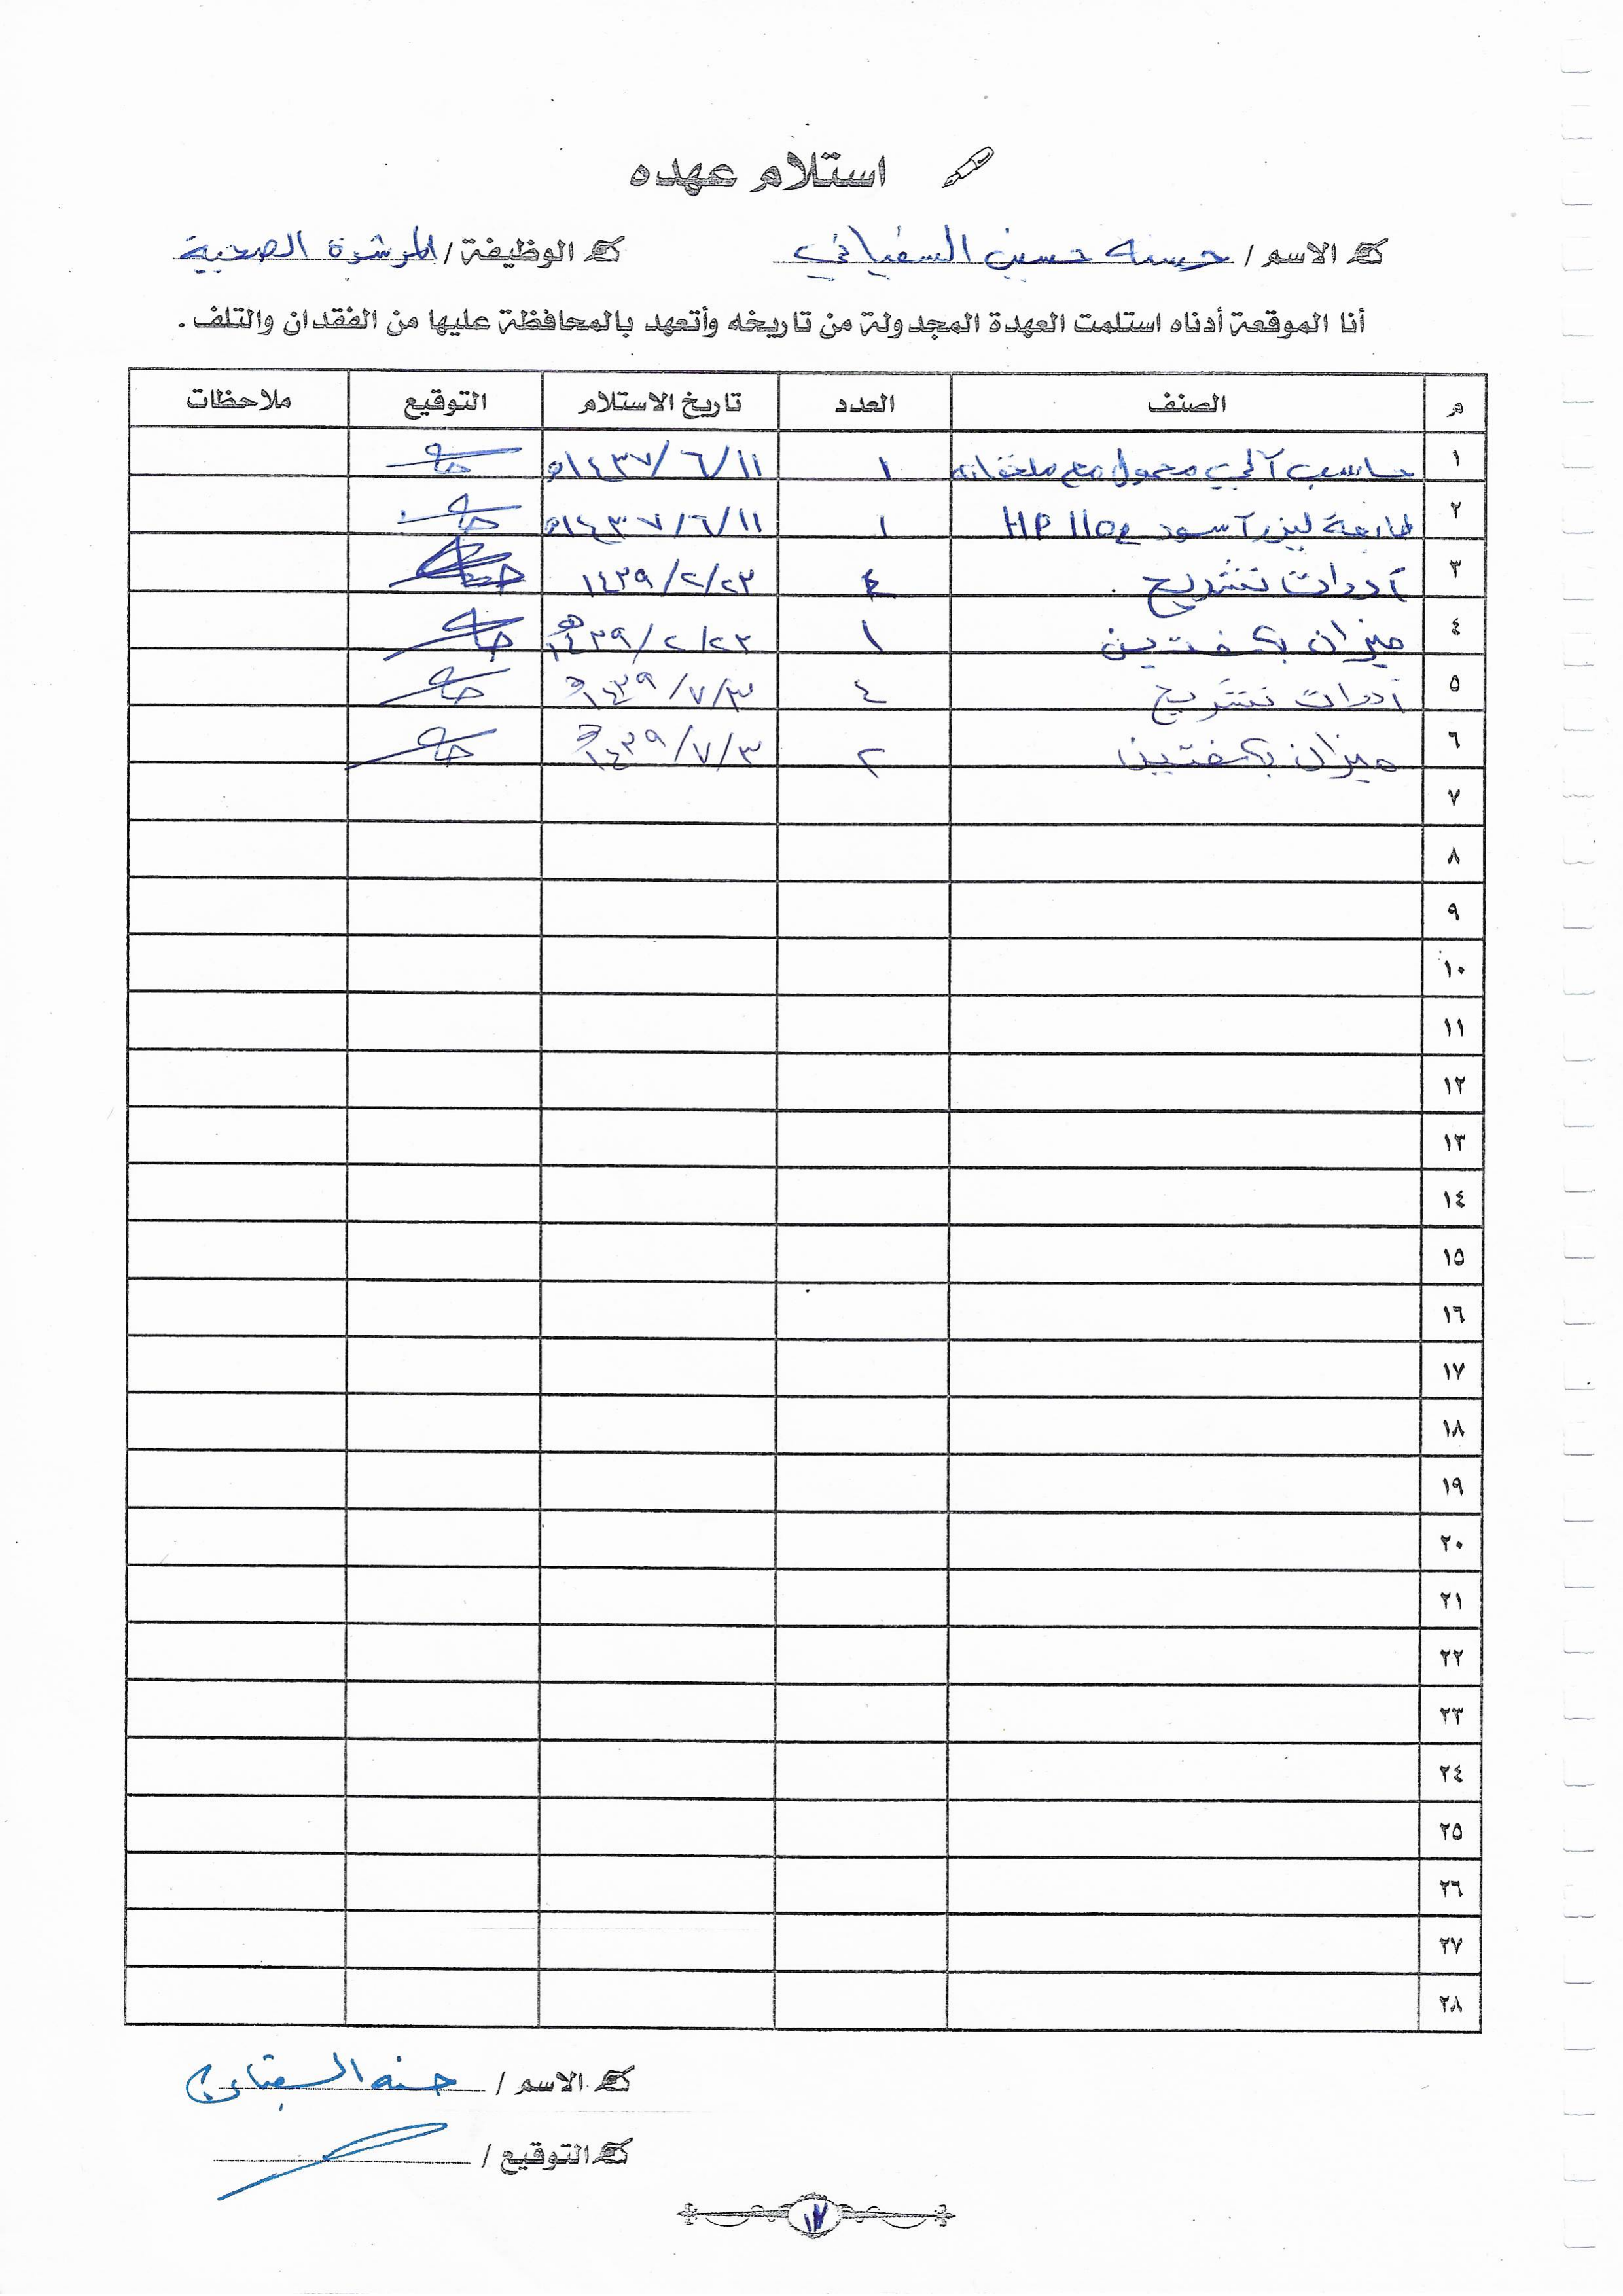 استلام عهده
الاسم / حسنه حسين السفياني الوظيفة / المرشدة الصحية
أنا الموقعة أدناه استلمت العهدة المجدولة من تاريخه وأتعهد بالمحافظة عليها من الفقدان والتلف .
م الصنف العدد تاريخ الاستلام التوقيع ملاحظات
١ حاسب آلي محمول مع ملحقاته ١ ١١/٦/١٤٣٧ه
٢ طابعة ليزر آسود HP 1102 ١ ١١/٦/١٤٣٧ه
٣ آدوات تشريح . ٤ ٢٣/٢/١٤٣٩
٤ ميزان بكفتين ١ ٢٣/٢/١٤٣٩ه
٥ آدوات تشريح ٤ ٣/٧/١٤٣٩ه
٦ ميزان بكفتين ٢ ٣/٧/١٤٣٩ه
٧
٨
٩
١٠
١١
١٢
١٣
١٤
١٥
١٦
١٧
١٨
١٩
٢٠
٢١
٢٢
٢٣
٢٤
٢٥
٢٦
٢٧
٢٨
الاسم / حسنه السفياني
التوقيع /
١٧